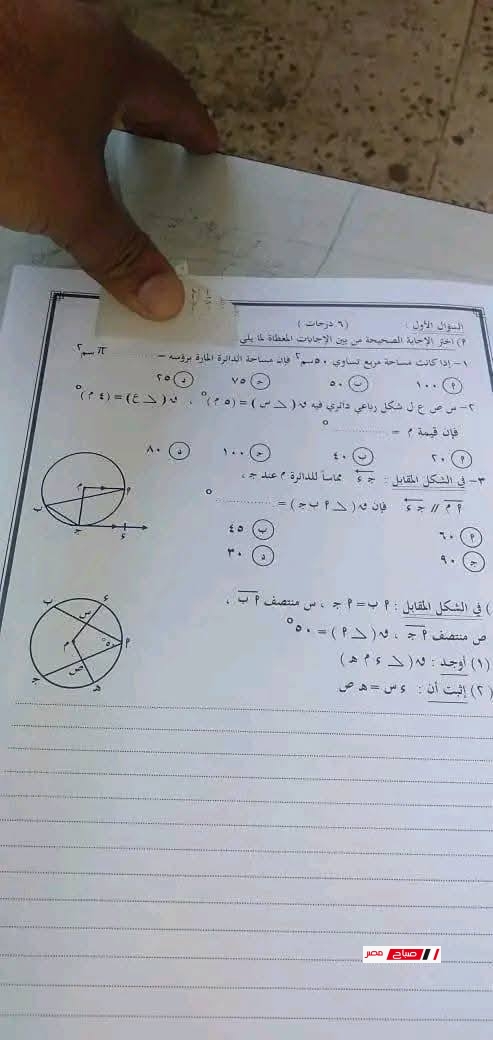 السؤال الأول : (٦ درجات)
٩) اختر الإجابة الصحيحة من بين الإجابات المعطاة لما يلي
١- إذا كانت مساحة مربع تساوي ٥٠ سم٢ فإن مساحة الدائرة المارة برؤسه = ............ π سم٢
٩ ١٠٠ ب ٥٠ ج ٧٥ د ٢٥
٢- س ص ع ل شكل رباعي دائري فيه ق(∠س) = (٥ م)° ، ق(∠ع) = (٤ م)°
فإن قيمة م = ............°
٩ ٢٠ ب ٤٠ ج ١٠٠ د ٨٠
٣- في الشكل المقابل : جـ ء مماساً للدائرة م عند جـ ،
٩ م // جـ ء فإن ق(∠ ٩ ب جـ) = ............°
٩ ٦٠ ب ٤٥
ج ٩٠ د ٣٠
م ٩ ب جـ ء
) في الشكل المقابل : ٩ ب = ٩ جـ ، س منتصف ٩ ب ،
ص منتصف ٩ جـ ، ق(∠ ٩) = ٥٠°
(١) أوجد : ق(∠ ء م هـ)
(٢) إثبت أن : ء س = هـ ص
ء ب س ٥٠° ٩ م ص جـ هـ
صباح مصر